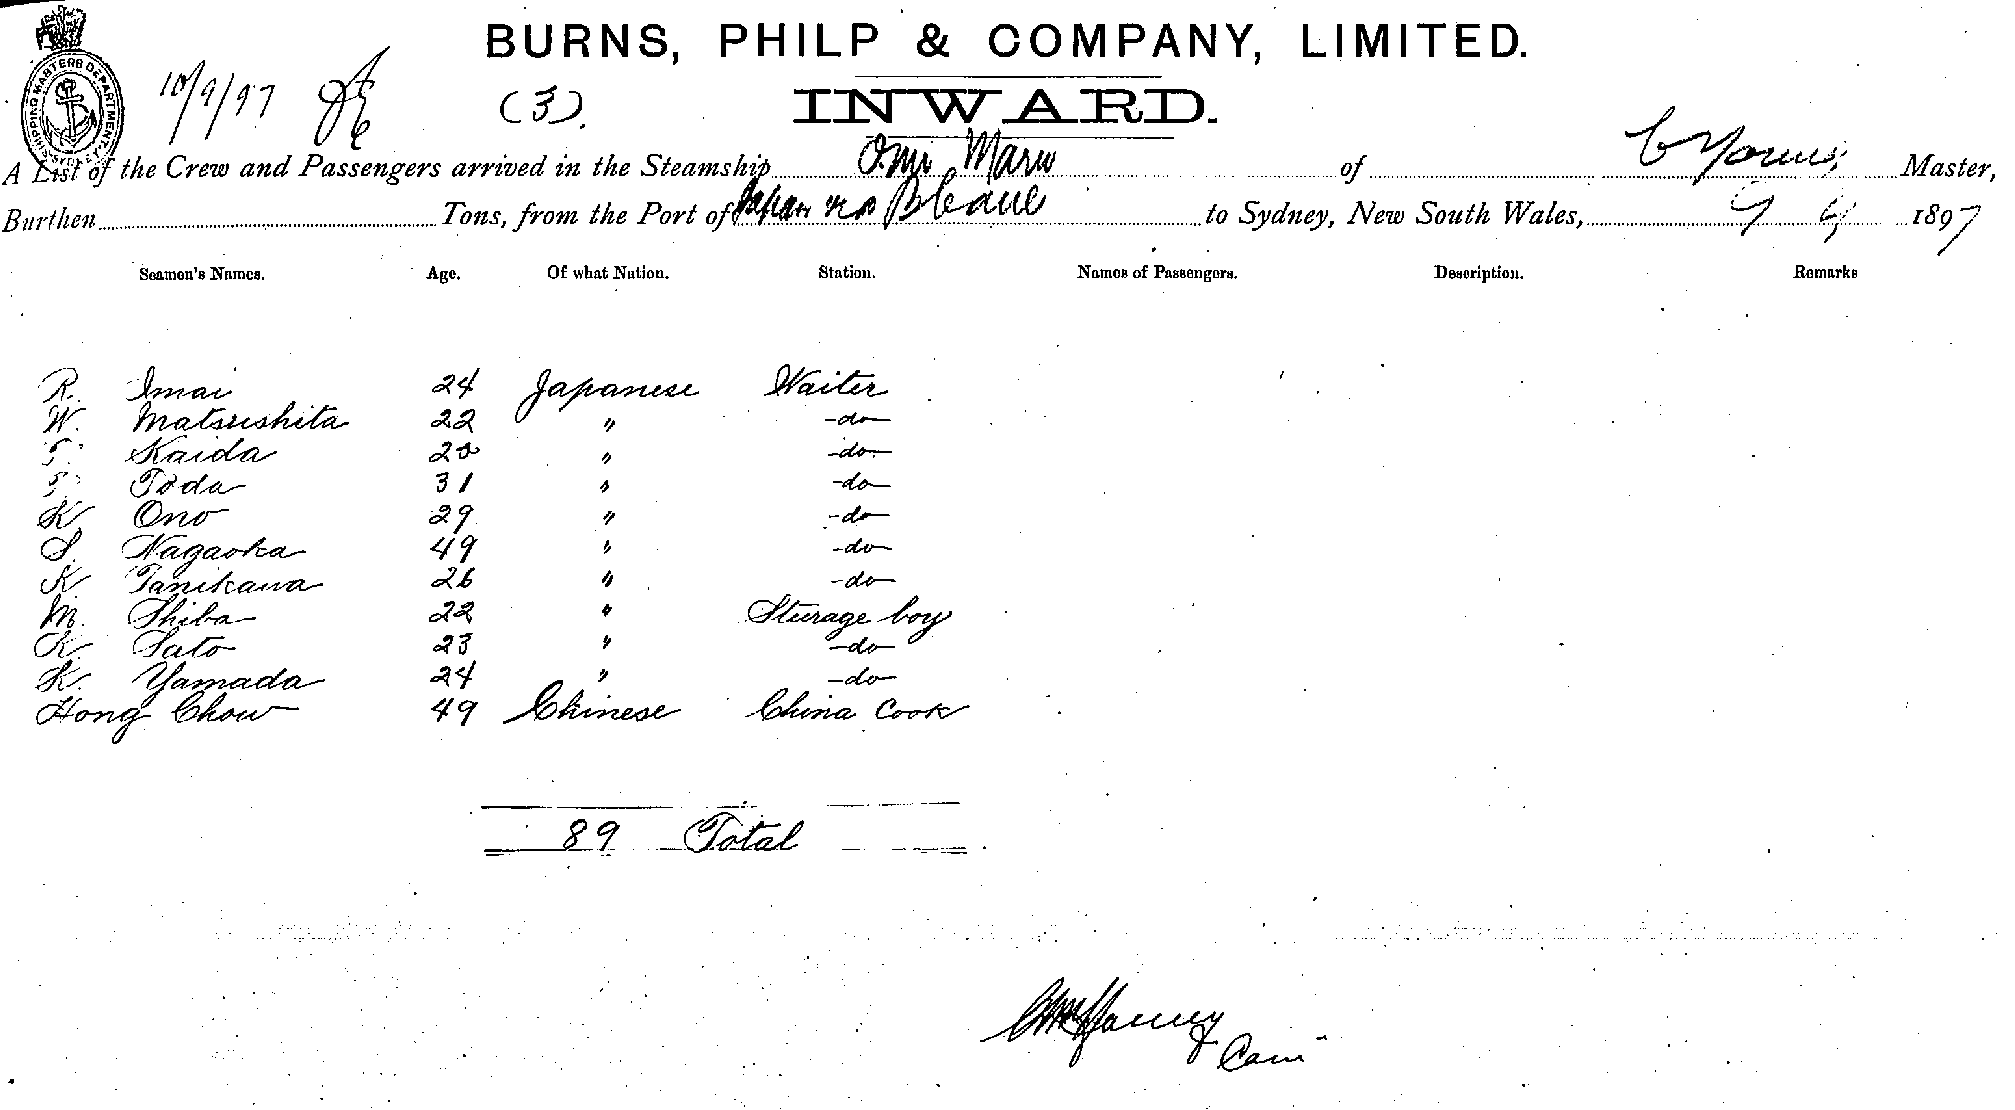 BURNS, PHILP & COMPANY, LIMITED.
SHIPPING MASTERS DEPARTMENT SYDNEY
10/9/97
(3).
INWARD.
A List of the Crew and Passengers arrived in the Steamship Omi Maru of C Young Master,
Burthen Tons, from the Port of Japan via B to Sydney, New South Wales, 9 9 1897
Seamen's Names. Age. Of what Nation. Station. Names of Passengers. Description. Remarks
R. Imai 24 Japanese Waiter
W. Matsushita 22 " -do-
T. Kaida 20 " -do-
T. Toda 31 " -do-
K Ono 29 " -do-
S. Nagaoka 49 " -do-
K Tanikawa 26 " -do-
M. Shiba 22 " Sturage boy
K. Sato 23 " -do-
K. Yamada 24 " -do-
Hong Chow 49 Chinese China Cook
89 Total